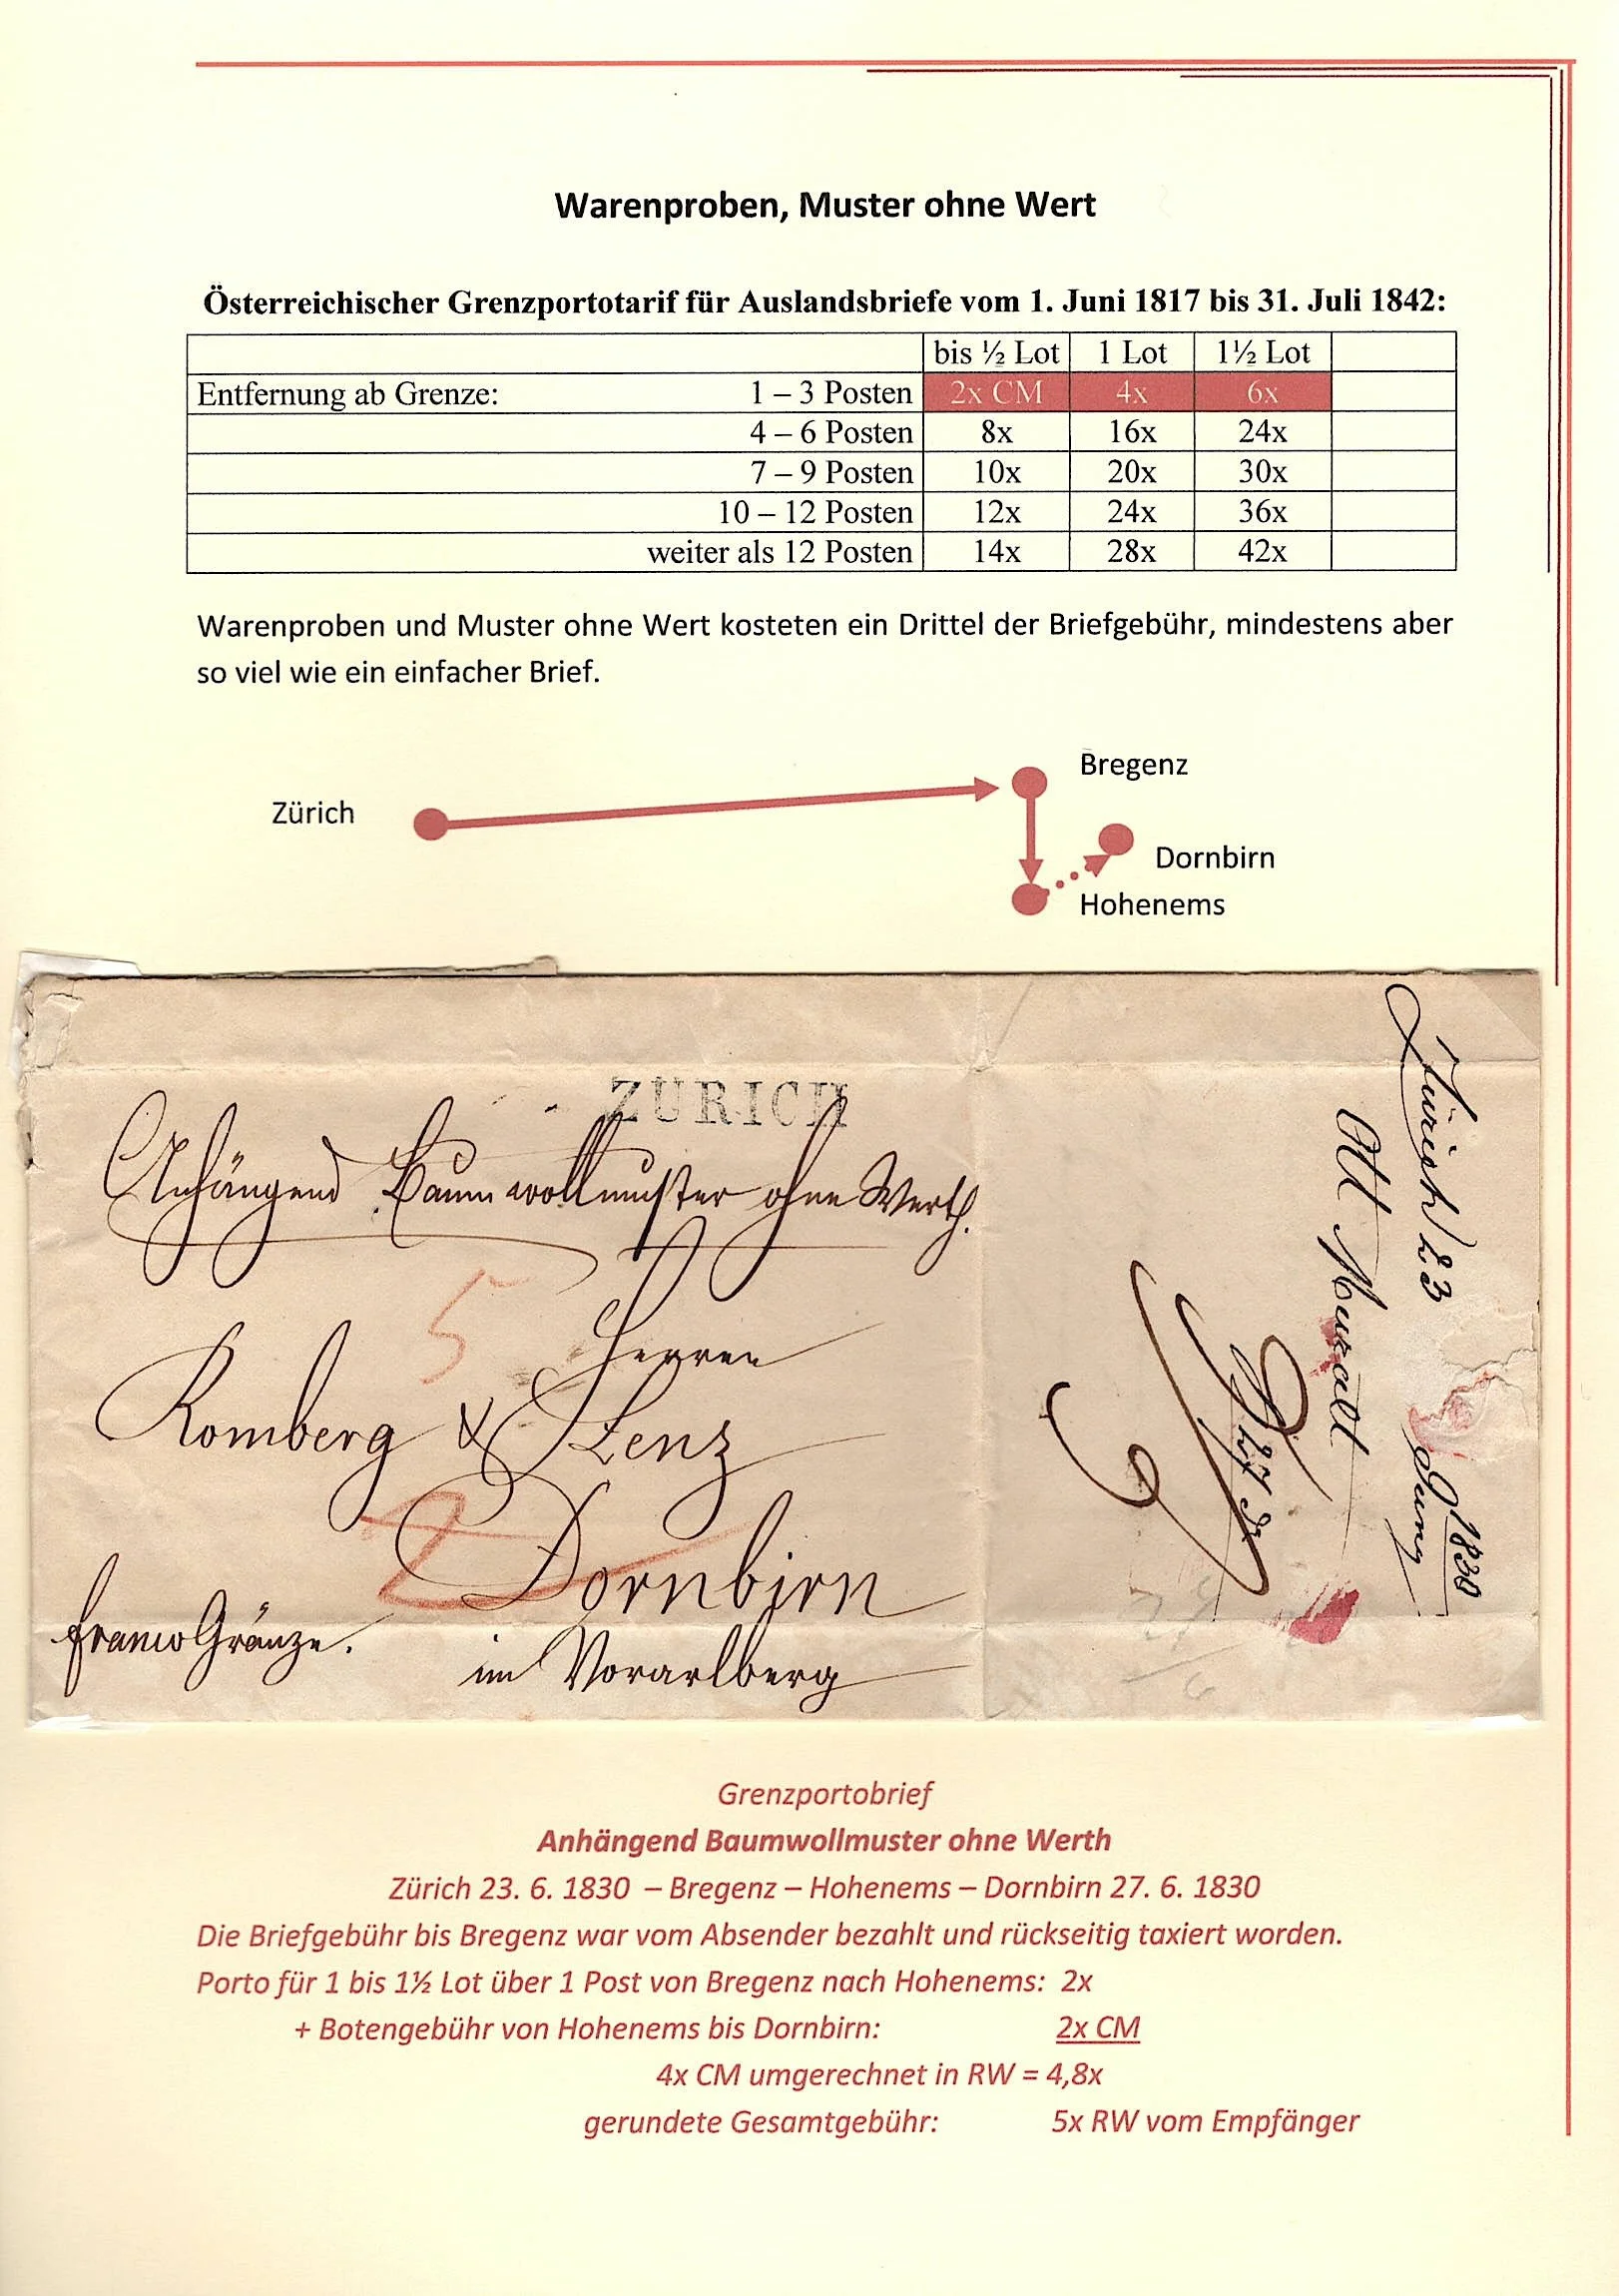 Warenproben, Muster ohne Wert
Österreichischer Grenzportotarif für Auslandsbriefe vom 1. Juni 1817 bis 31. Juli 1842:
bis ½ Lot 1 Lot 1½ Lot
Entfernung ab Grenze: 1 – 3 Posten 2x CM 4x 6x
4 – 6 Posten 8x 16x 24x
7 – 9 Posten 10x 20x 30x
10 – 12 Posten 12x 24x 36x
weiter als 12 Posten 14x 28x 42x
Warenproben und Muster ohne Wert kosteten ein Drittel der Briefgebühr, mindestens aber
so viel wie ein einfacher Brief.
Bregenz
Zürich
Dornbirn
Hohenems
ZÜRICH
Anhängend Baumwollmuster ohne Werth.
5
Herren
Romberg & Lenz
2
Dornbirn
franco Gränze.
im Vorarlberg
Zürich 23 Juny 1830
Ott Muralt
Grenzportobrief
Anhängend Baumwollmuster ohne Werth
Zürich 23. 6. 1830 – Bregenz – Hohenems – Dornbirn 27. 6. 1830
Die Briefgebühr bis Bregenz war vom Absender bezahlt und rückseitig taxiert worden.
Porto für 1 bis 1½ Lot über 1 Post von Bregenz nach Hohenems: 2x
+ Botengebühr von Hohenems bis Dornbirn: 2x CM
4x CM umgerechnet in RW = 4,8x
gerundete Gesamtgebühr: 5x RW vom Empfänger